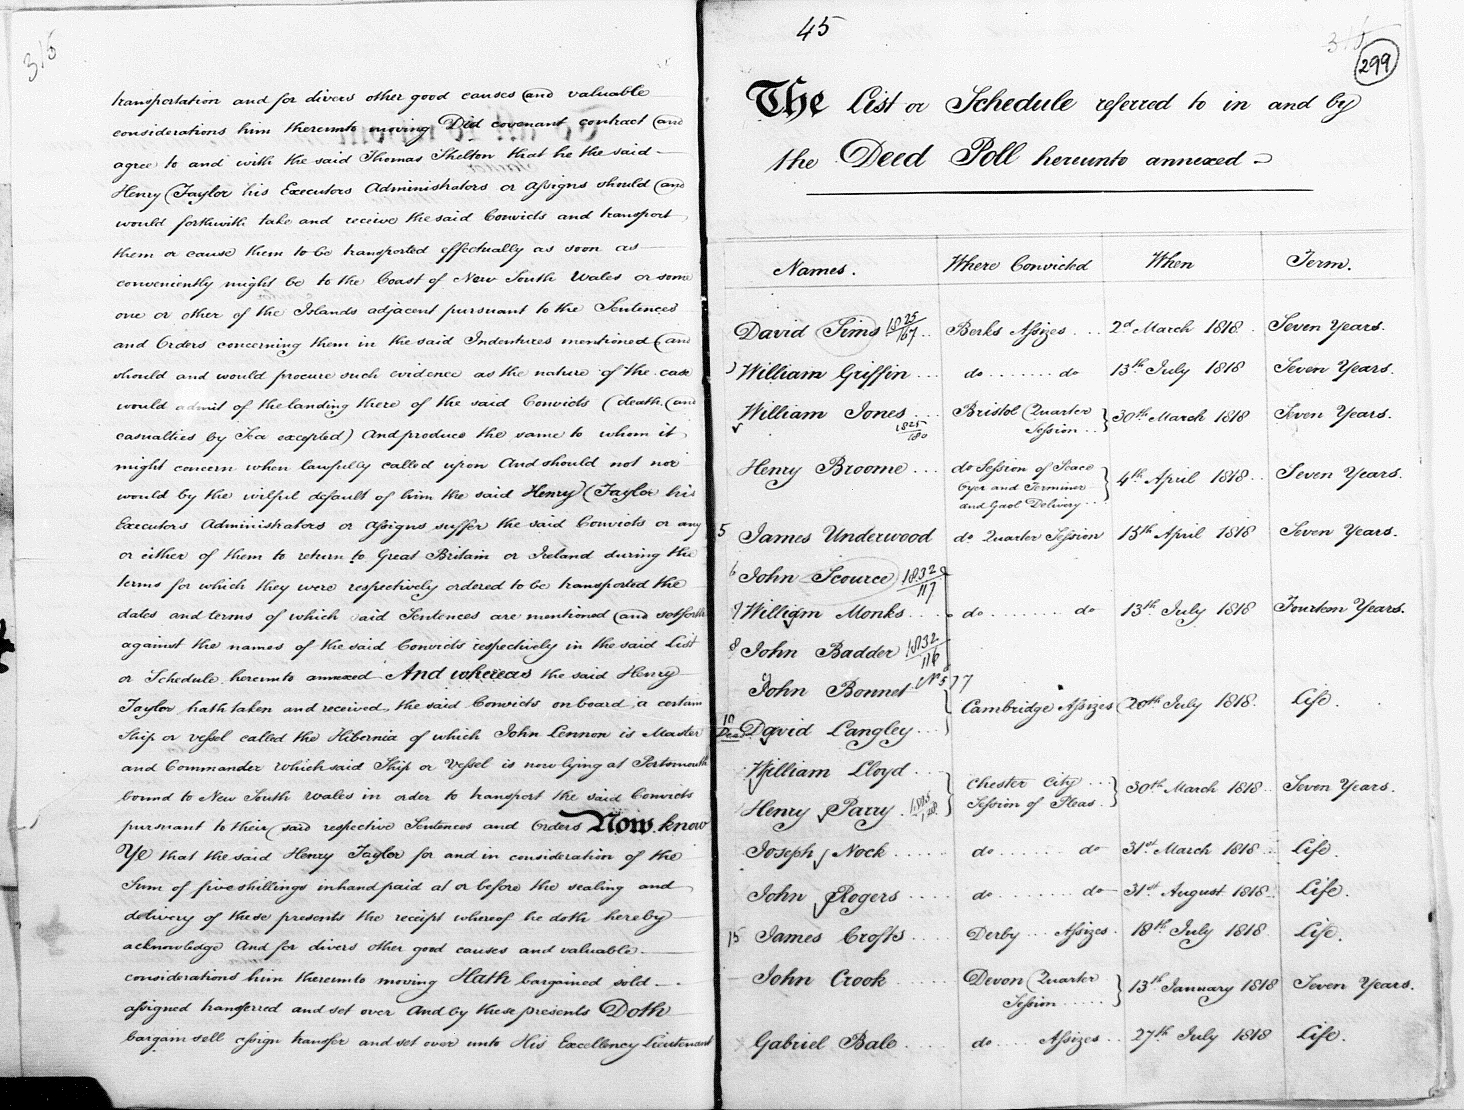 315
transportation and for divers other good causes and valuable
considerations him thereunto moving Did covenant contract and
agree to and with the said Thomas Shelton that he the said
Henry Taylor his Executors Administrators or Aſsigns should and
would forthwith take and receive the said Convicts and transport
them or cause them to be transported effectually as soon as
conveniently might be to the Coast of New South Wales or some
one or other of the Islands adjacent pursuant to the Sentences
and Orders concerning them in the said Indentures mentioned and
should and would procure such evidence as the nature of the case
would admit of the landing there of the said Convicts (death and
casualties by Sea excepted) And produce the same to whom it
might concern when lawfully called upon And should not nor
would by the wilful default of him the said Henry Taylor his
Executors Administrators or Aſsigns suffer the said Convicts or any
or either of them to return to Great Britain or Ireland during the
terms for which they were respectively ordered to be transported the
dates and terms of which said Sentences are mentioned and setforth
against the names of the said Convicts respectively in the said List
or Schedule hereunto annexed And whereas the said Henry
Taylor hath taken and received the said Convicts on board a certain
Ship or veſsel called the Hibernia of which John Lennon is Master
and Commander which said Ship or Veſsel is now lying at Portsmouth
bound to New South Wales in order to transport the said Convicts
pursuant to their said respective Sentences and Orders Now know
Ye that the said Henry Taylor for and in consideration of the
Sum of five shillings in hand paid at or before the sealing and
delivery of these presents the receipt whereof he doth hereby
acknowledge And for divers other good causes and valuable
considerations him thereunto moving Hath bargained sold
aſsigned transferred and set over And by these presents Doth
bargain sell aſsign transfer and set over unto His Excellency Lieutenant
45
315
299
The List or Schedule referred to in and by
the Deed Poll hereunto annexed
Names. Where Convicted When Term.
David Sims 1825/167 Berks Aſsizes 2d March 1818 Seven Years.
William Griffin do do 13th July 1818 Seven Years.
William Jones 1825/180 Bristol Quarter Seſsion 30th March 1818 Seven Years.
Henry Broome do Seſsion of Peace
Oyer and Terminer
and Gaol Delivery 4th April 1818 Seven Years.
5 James Underwood do Quarter Seſsion 15th April 1818 Seven Years.
6 John Scource 1832/117
7 William Monks do do 13th July 1818 Fourteen Years.
8 John Badder 1832/116
9 John Bonnet No 577
10 Dead David Langley Cambridge Aſsizes 20th July 1818 Life.
William Lloyd
Henry Parry Chester City
Seſsion of Pleas 30th March 1818 Seven Years.
Joseph Nock do do 31st March 1818 Life.
John Rogers do do 31st August 1818 Life.
15 James Crofts Derby Aſsizes 18th July 1818 Life.
John Crook Devon Quarter
Seſsion 13th January 1818 Seven Years.
Gabriel Bale do Aſsizes 27th July 1818 Life.